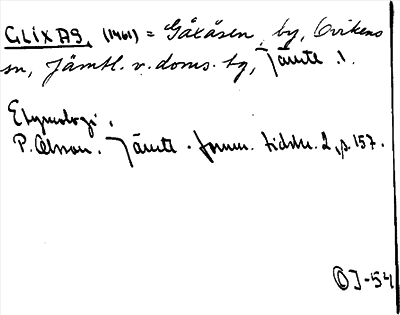 GLIXÅS, (1461) = Gåxåsen, by, Ovikens
sn, Jämtl. v. doms. tg, Jämtl. l.
Etymologi.
P. Olsson. Jämtl. fornm. tidskr. 2, s. 157.
OJ-54